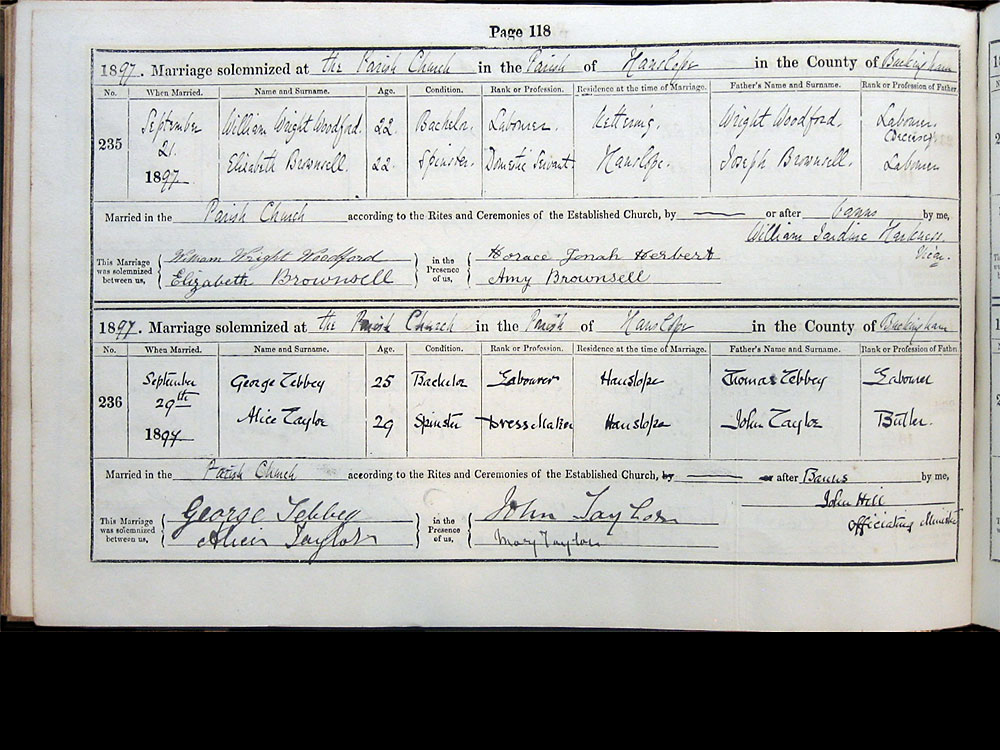 Page 118
1897. Marriage solemnized at the Parish Church in the Parish of Hanslope in the County of Buckingham
No. When Married. Name and Surname. Age. Condition. Rank or Profession. Residence at the time of Marriage. Father's Name and Surname. Rank or Profession of Father.
235 September 21. 1897 William Wright Woodford. 22. Bachelor. Labourer. Kettering. Wright Woodford. Labourer. Deceased
Elizabeth Brownsell. 22. Spinster. Domestic Servant Hanslope. Joseph Brownsell. Labourer
Married in the Parish Church according to the Rites and Ceremonies of the Established Church, by or after banns by me,
William Jardine Harkness.
Vicar.
This Marriage was solemnized between us, William Wright Woodford in the Presence of us, Horace Jonah Herbert
Elizabeth Brownsell Amy Brownsell
1897. Marriage solemnized at the Parish Church in the Parish of Hanslope in the County of Buckingham
No. When Married. Name and Surname. Age. Condition. Rank or Profession. Residence at the time of Marriage. Father's Name and Surname. Rank or Profession of Father
236 September 29th 1897 George Tebbey 25 Bachelor Labourer Hanslope Thomas Tebbey Labourer
Alice Taylor 29 Spinster Dress Maker Hanslope John Taylor Butler.
Married in the Parish Church according to the Rites and Ceremonies of the Established Church, by or after Banns by me,
John Hill
Officiating Minister
This Marriage was solemnized between us, George Tebbey in the Presence of us, John Taylor
Alice Taylor Mary Taylor